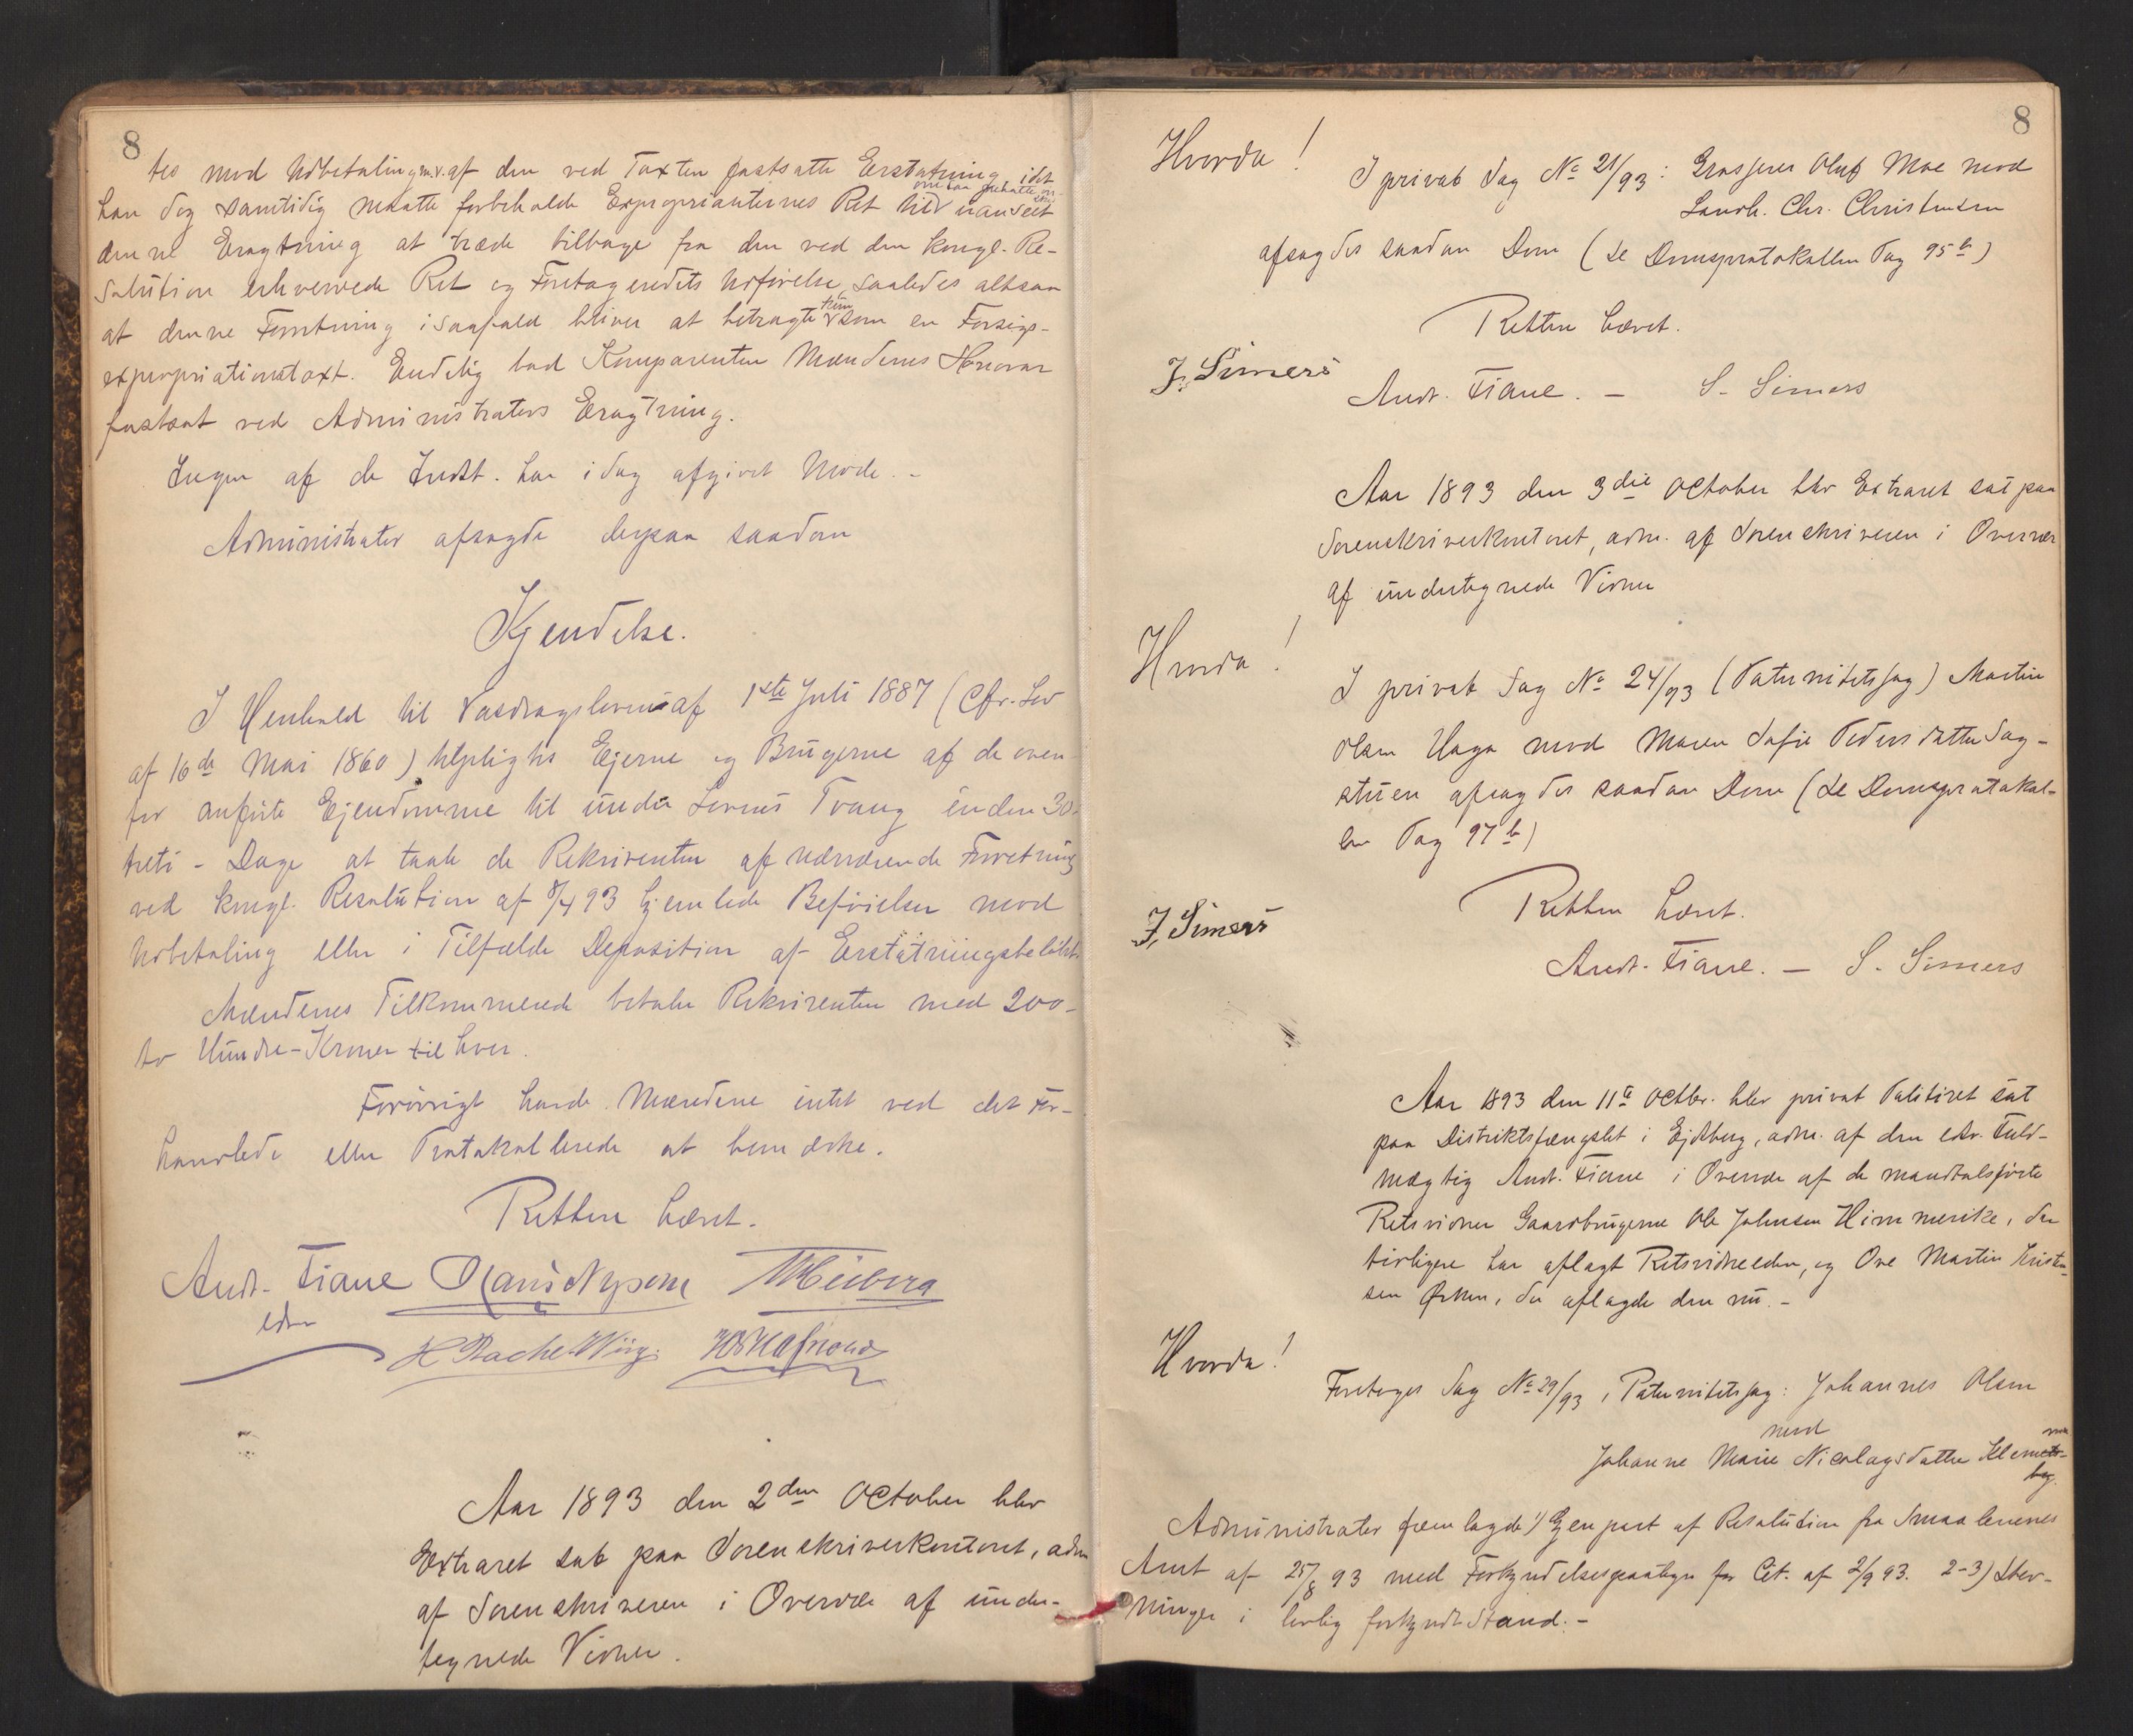 8
tes mod Udbetaling m.v. af den ved Taxten fastsatte Erstatning, idet
han dog samtidig maatte forbeholde Exproprianternes Ret til uanseet
denne Eragtning at træde tilbage fra den ved den kongl. Re-
solution erhvervede Ret og Foretagendets Udførelse, saaledes altsaa
at denne Forretning i saafald bliver at betragte kun som en Forsøgs-
expropriationstaxt. Endelig bad Komparenten Mændenes Honorar
fastsat ved Administrators Eragtning.
Ingen af de Indst. har idag afgivet Møde. -
Administrator afsagde derpaa saadan
Kjendelse.
I Henhold til Vasdragsloven af 1ste Juli 1887 (Cfr. Lov
af 16de Mai 1860) tilpligtes Ejerne og Brugerne af de oven-
for anførte Ejendomme til under Lovens Tvang inden 30-
treti - Dage at taale de Rekvirenten af nærværende Forretning
ved kongl. Resolution af 8/4 93 hjemlede Beføielser mod
Udbetaling eller i Tilfælde Deposition af Erstatningsbeløbet.
Mændenes Tilkommende betaler Rekvirenten med 200-
to Hundre-Kroner til hver.
Forøvrigt havde Mændene intet ved det For-
handlede eller Protokollerede at bemærke.
Retten hævet.
Andr. Fiane
edsv
H Bache Wiig.
Aar 1893 den 2den October blev
Extraret sat paa Sorenskriverkontoret, adm
af Sorenskriveren i Overvær af under-
tegnede Vidner.
8
Hvorda!
I privat Sag No 21/93: Grosserer Oluf Moe mod
Landh. Chr. Christensen
afsagdes saadan Dom (se Domsprotokollen Pag 95b)
Retten hævet.
J. Simers
Andr. Fiane. - S. Simers
Aar 1893 den 3die October blev Extraret sat paa
Sorenskriverkontoret, adm. af Sorenskriveren i Overvær
af undertegnede Vidner
Hvorda!
I privat Sag No 24/93 (Paternitetssag) Martin
Olsen Haga mod Maren Sofie Pedersdatter Dag-
stuen afsagdes saadan Dom (se Domsprotokol-
len Pag 97b)
Retten hævet.
J. Simers
Andr. Fiane. - S. Simers
Aar 1893 den 11te Octbr. blev privat Politiret sat
paa Distriktsfængslet i Ejdsberg, adm. af den edsv. Fuld-
mægtig Andr. Fiane i Overvær af de mandtalsførte
Retsvidner Gaardbrugerne Ole Johnsen Himmerike, der
tidligere har aflagt Retsvidneeden, og Ove Martin Kristen-
sen Ørken, der aflagde den nu. -
Hvorda!
Foretoges Sag No 29/93, Paternitetssag: Johannes Olsen
mod
Johanne Marie Nicolaysdatter
Administrator fremlagde 1) Gjenpart af Resolution fra Smaalenenes
Amt af 25/8 93 med Forkyndelsespaategn for Cit. af 2/9 93. 2-3) Stev-
ninger i lovlig forkyndt Stand. -